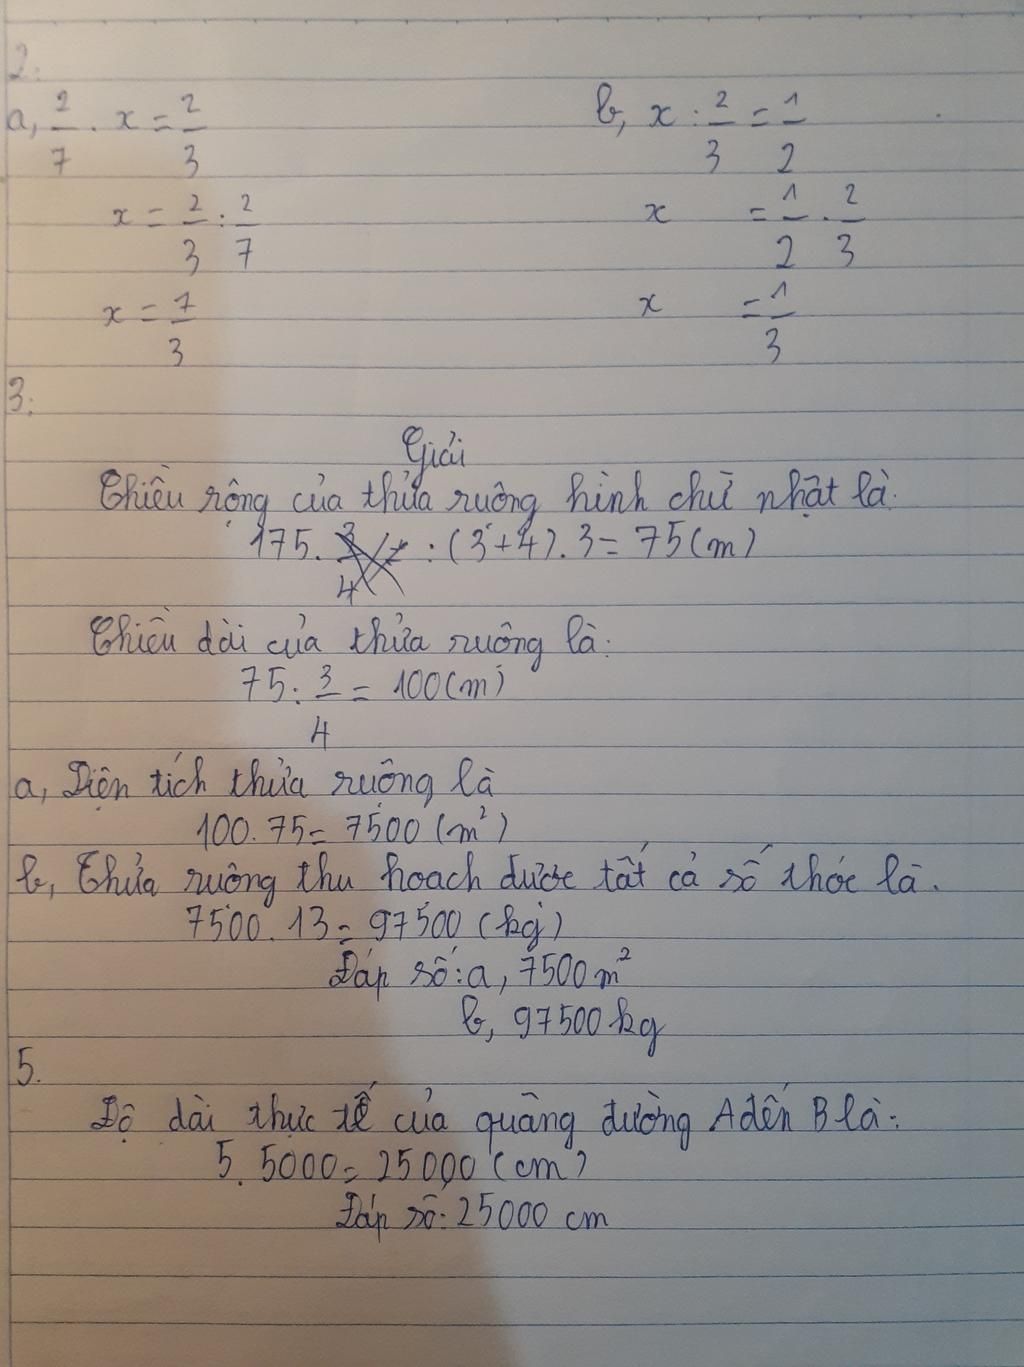 2.
a, 2/7 . x = 2/3
x = 2/3 : 2/7
x = 7/3
b, x : 2/3 = 1/2
x = 1/2 . 2/3
x = 1/3
3.
Giải
Chiều rộng của thửa ruộng hình chữ nhật là:
175 : (3+4) . 3 = 75 (m)
Chiều dài của thửa ruộng là:
75 : 3/4 = 100 (m)
a, Diện tích thửa ruộng là
100 . 75 = 7500 (m²)
b, Thửa ruộng thu hoạch được tất cả số thóc là.
7500 . 13 = 97500 (kg)
Đáp số: a, 7500 m²
b, 97500 kg
5.
Độ dài thực tế của quãng đường A đến B là:
5 . 5000 = 25000 (cm)
Đáp số: 25000 cm